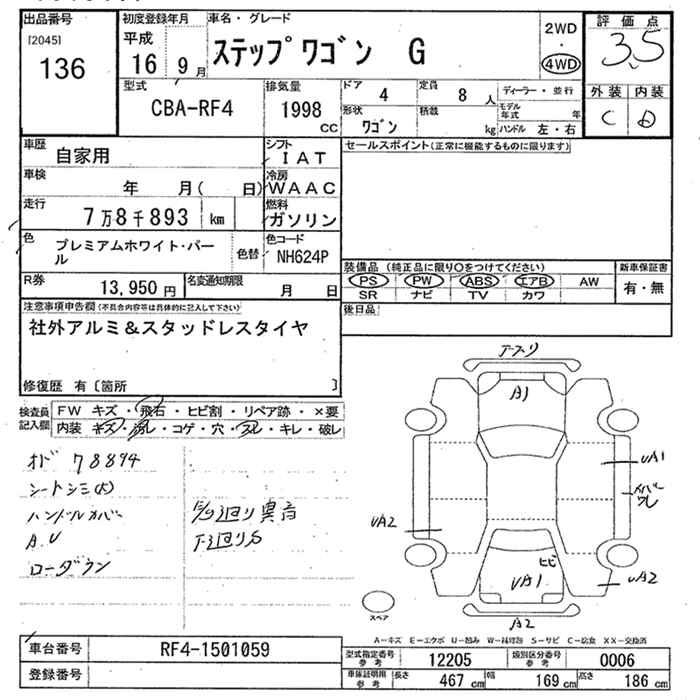 出品番号
[2045]
136
初度登録年月
平成
16 9月
車名・グレード
ステップワゴン G
2WD
・
4WD
評価点
3.5
型式
CBA-RF4
排気量
1998
CC
ドア
4
定員
8人
ディーラー・並行
形状
ワゴン
積載
kg
モデル年式 年
ハンドル 左・右
外装 内装
C D
車歴
自家用
シフト
IAT
車検
年 月( 日)
冷房
WAAC
走行
7万8千893 km
燃料
ガソリン
色
プレミアムホワイト・パール
色替
色コード
NH624P
R券
13,950円
名変通知期限
月 日
セールスポイント(正常に機能するものに限ります)
装備品 (純正品に限り○をつけてください)
PS PW ABS エアB AW
SR ナビ TV カワ
新車保証書
有・無
後日品
注意事項申告欄(不具合内容等は具体的に記入して下さい)
社外アルミ&スタッドレスタイヤ
修復歴 有〔箇所 〕
検査員記入欄
FW キズ・飛石・ヒビ割・リペア跡・×要
内装 キズ・汚レ・コゲ・穴・スレ・キレ・破レ
オド 78894
シートシミ(大)
ハンドルカバー
A.V
ローダウン
下廻りS
A1
UA1
UA2
ヒビ
UA1
UA2
A2
スペア
A-キズ E-エクボ U-凹み W-補修跡 S-サビ C-腐食 XX-交換済
車台番号
RF4-1501059
登録番号
型式指定番号
参考
12205
類別区分番号
参考
0006
車庫証明用
参考
長さ 467 cm
幅 169 cm
高さ 186 cm